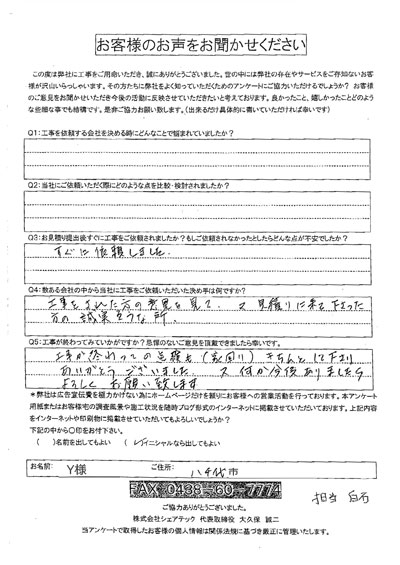 お客様のお声をお聞かせください
この度は弊社に工事をご用命いただき、誠にありがとうございました。世の中には弊社の存在やサービスをご存知ないお客
様が沢山いらっしゃいます。その方たちに弊社をよく知っていただくためのアンケートにご協力いただけるでしょうか？ お客様
のご意見をお聞かせいただき今後の活動に反映させていただきたいと考えております。良かったこと、嬉しかったことどのよう
な些細な事でも結構です。是非ご協力お願い致します。（出来るだけ具体的に書いていただければ幸いです）
Q1：工事を依頼する会社を決める時にどんなことで悩まれていましたか？
Q2：当社にご依頼いただく際にどのような点を比較・検討されましたか？
Q3：お見積り提出後すぐに工事をご依頼されましたか？もしご依頼されなかったとしたらどんな点が不安でしたか？
すぐに依頼しました。
Q4：数ある会社の中から当社に工事をご依頼いただいた決め手は何ですか？
工事をされた方の意見を見て、又 見積りに来て下さった
方の誠実そうな所。
Q5：工事が終わってみていかがですか？忌憚のないご意見を頂戴できましたら幸いです。
工事が終わっての点検も（家周り）きちんとして下さり
ありがとうございました。 又 何か今後ありましたら
よろしく お願い致します
＊弊社は広告宣伝費を極力かけない為にホームページだけを頼りにお客様への営業活動を行っております。本アンケート
用紙またはお客様宅の調査風景や施工状況を随時ブログ形式のインターネットに掲載させていただいております。上記内容
をインターネットや印刷物に掲載させていただいてもよろしいでしょうか？
下記の中から〇印をお付下さい。
（ ）名前を出してもよい （レ）イニシャルなら出してもよい
お名前： Y様 ご住所： 八千代市
FAX 0438-60-7774
担当 白石
ご協力ありがとうございました。
株式会社シェアテック 代表取締役 大久保 誠二
当アンケートで取得したお客様の個人情報は関係法規に基づき厳正に管理いたします。